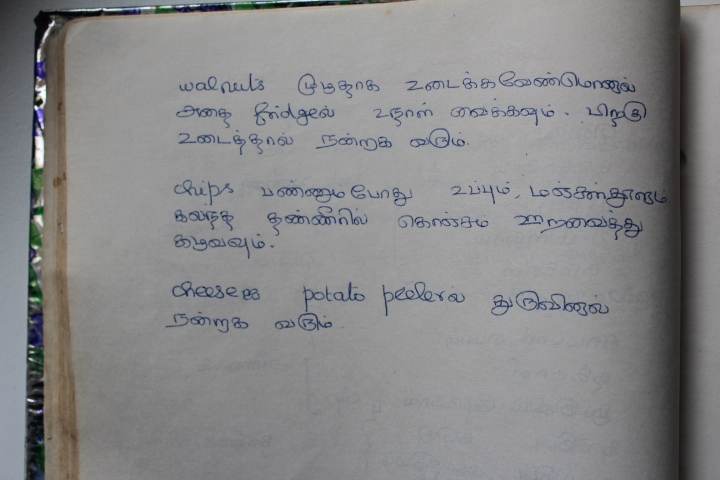 walnuts முழுதாக உடைக்கவேண்டுமானால்
அதை fridgeல் 2நாள் வைக்கவும். பிறகு
உடைத்தால் நன்றாக வரும்.
chips பண்ணும்போது உப்பும், மஞ்சள்தூளும்
கலந்த தண்ணீரில் கொஞ்சம் ஊறவைத்து
கழுவவும்.
cheeseஐ potato peelerல் துருவினால்
நன்றாக வரும்.